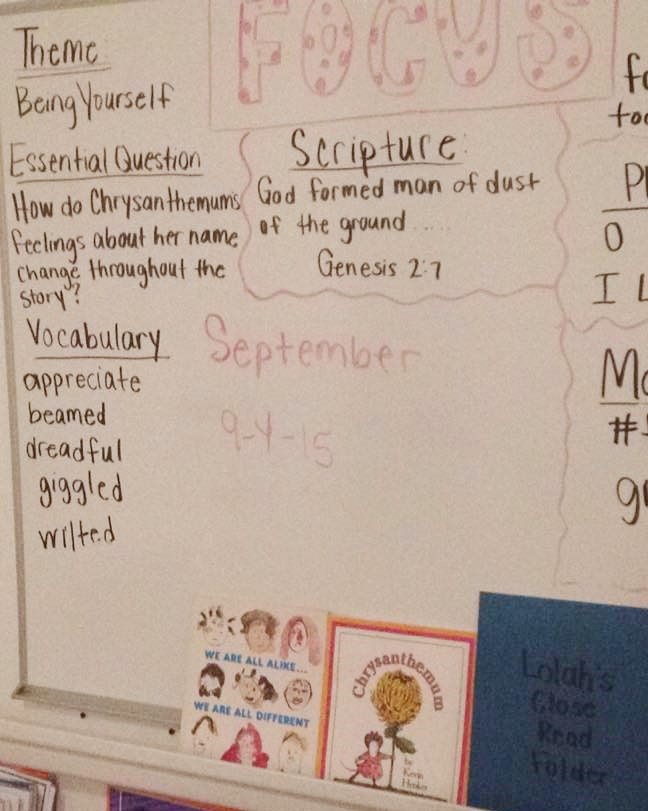 FOCUS
Theme
Being Yourself
Essential Question
How do Chrysanthemum's
feelings about her name
change throughout the
story?
Vocabulary
appreciate
beamed
dreadful
giggled
wilted
Scripture:
God formed man of dust
of the ground.....
Genesis 2:7
September
9-4-15
WE ARE ALL ALIKE...
WE ARE ALL DIFFERENT
Chrysanthemum
by
Kevin
Henkes
Lolah's
Close
Read
Folder
O
I L